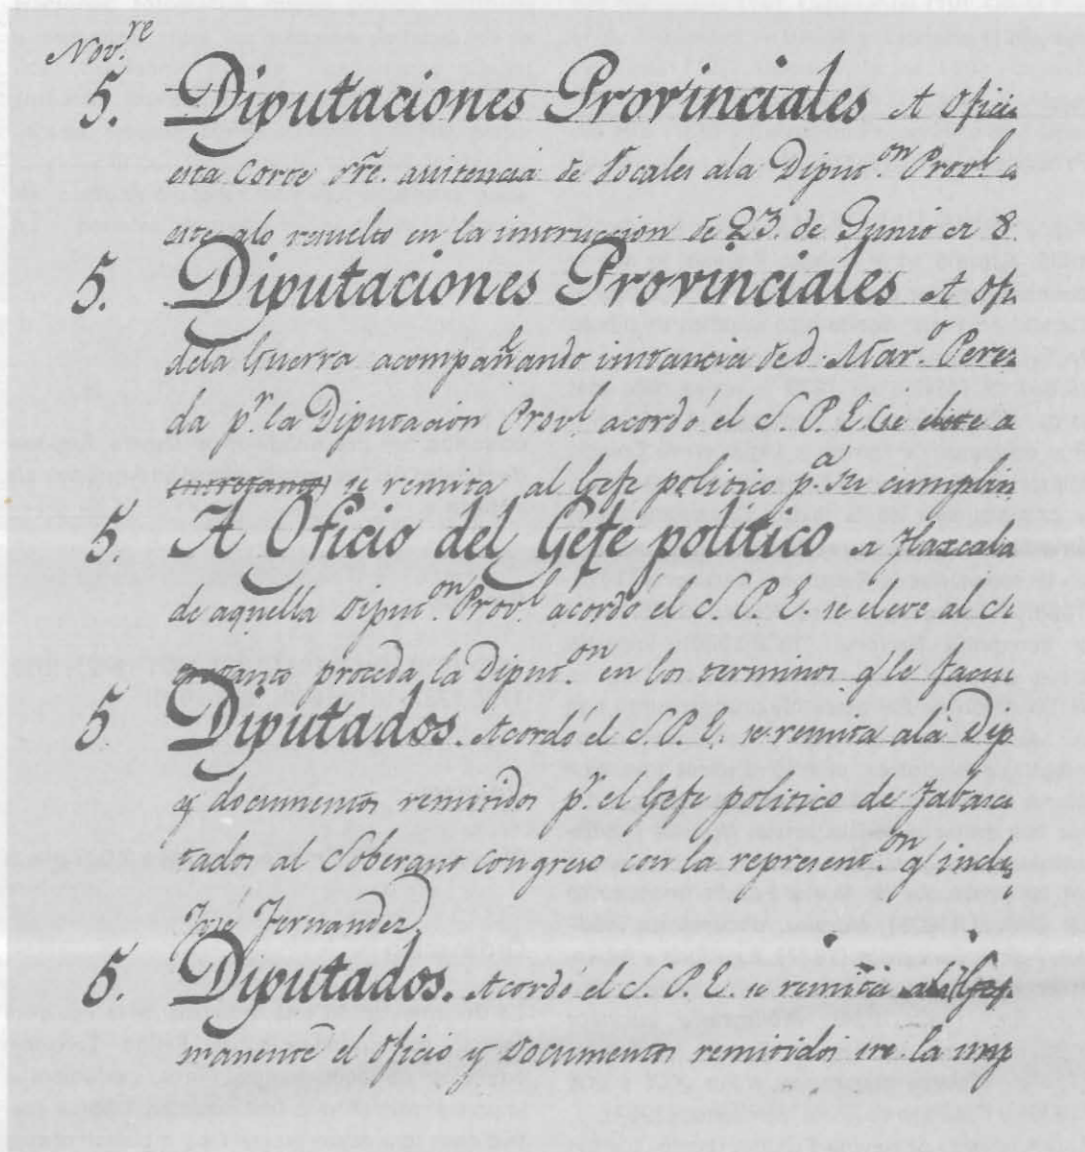 Nov.re
5. Diputaciones Provinciales A Ofici
esta Corte sre. asistencia de Vocales ala Diput.on Provl
este alo resuelto en la instruccion de 23. de Junio de 8
5. Diputaciones Provinciales A Ofi
dela Guerra acompañando instancia de d. Mar.o Perez
da pr. la Diputacion Provl acordó el S. P. E. se eleve a
entretanto se remita al Gefe politico p.a su cumplim
5 A Oficio del Gefe politico de Tlaxcala
de aquella Diput.on Provl acordó el S. P. E. se eleve al
entanto proceda la Diput.on en los terminos q.e le facul
5 Diputados. Acordó el S. P. E. se remita ala Dip
y documentos remitidos pr. el Gefe politico de Tabasco
tados al Soberano Congreso con la represent.on q.e inclu
José Fernandez.
5. Diputados. Acordó el S. P. E. se remita
manente el oficio y Documentos remitidos sre. la imp